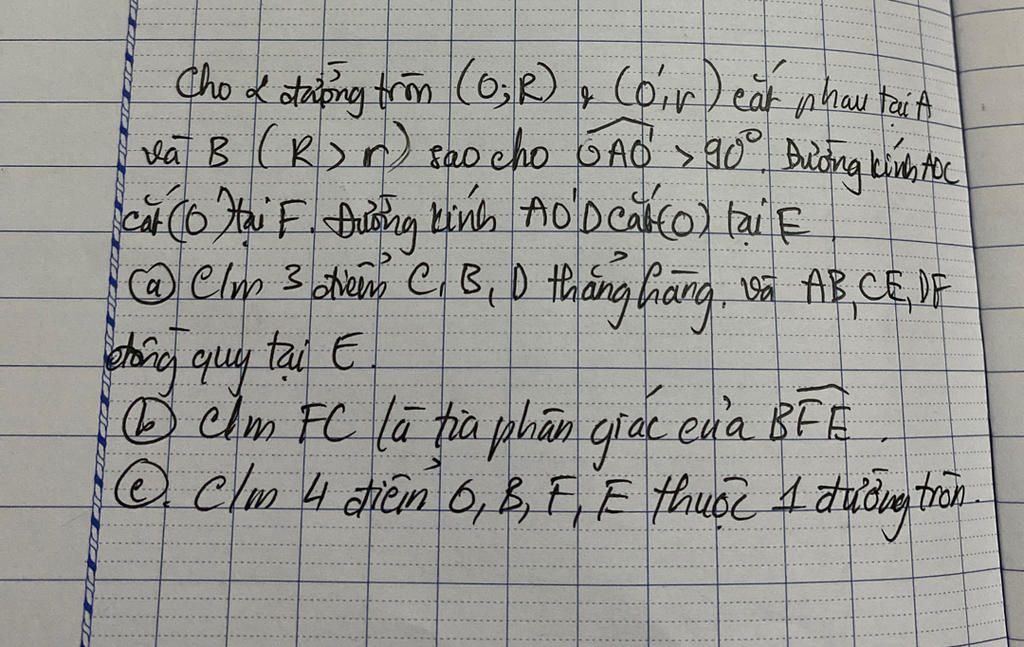 Cho 2 đường tròn (O;R) & (O',r) cắt nhau tại A
và B (R > r) sao cho OAO' > 90°. Đường kính AOC
cắt (O') tại F. Đường kính AO'D cắt (O) tại E
(a) C/m 3 điểm C, B, D thẳng hàng. và AB, CE, DF
đồng quy tại E.
(b) C/m FC là tia phân giác của BFE.
(c). C/m 4 điểm O, B, F, E thuộc 1 đường tròn.